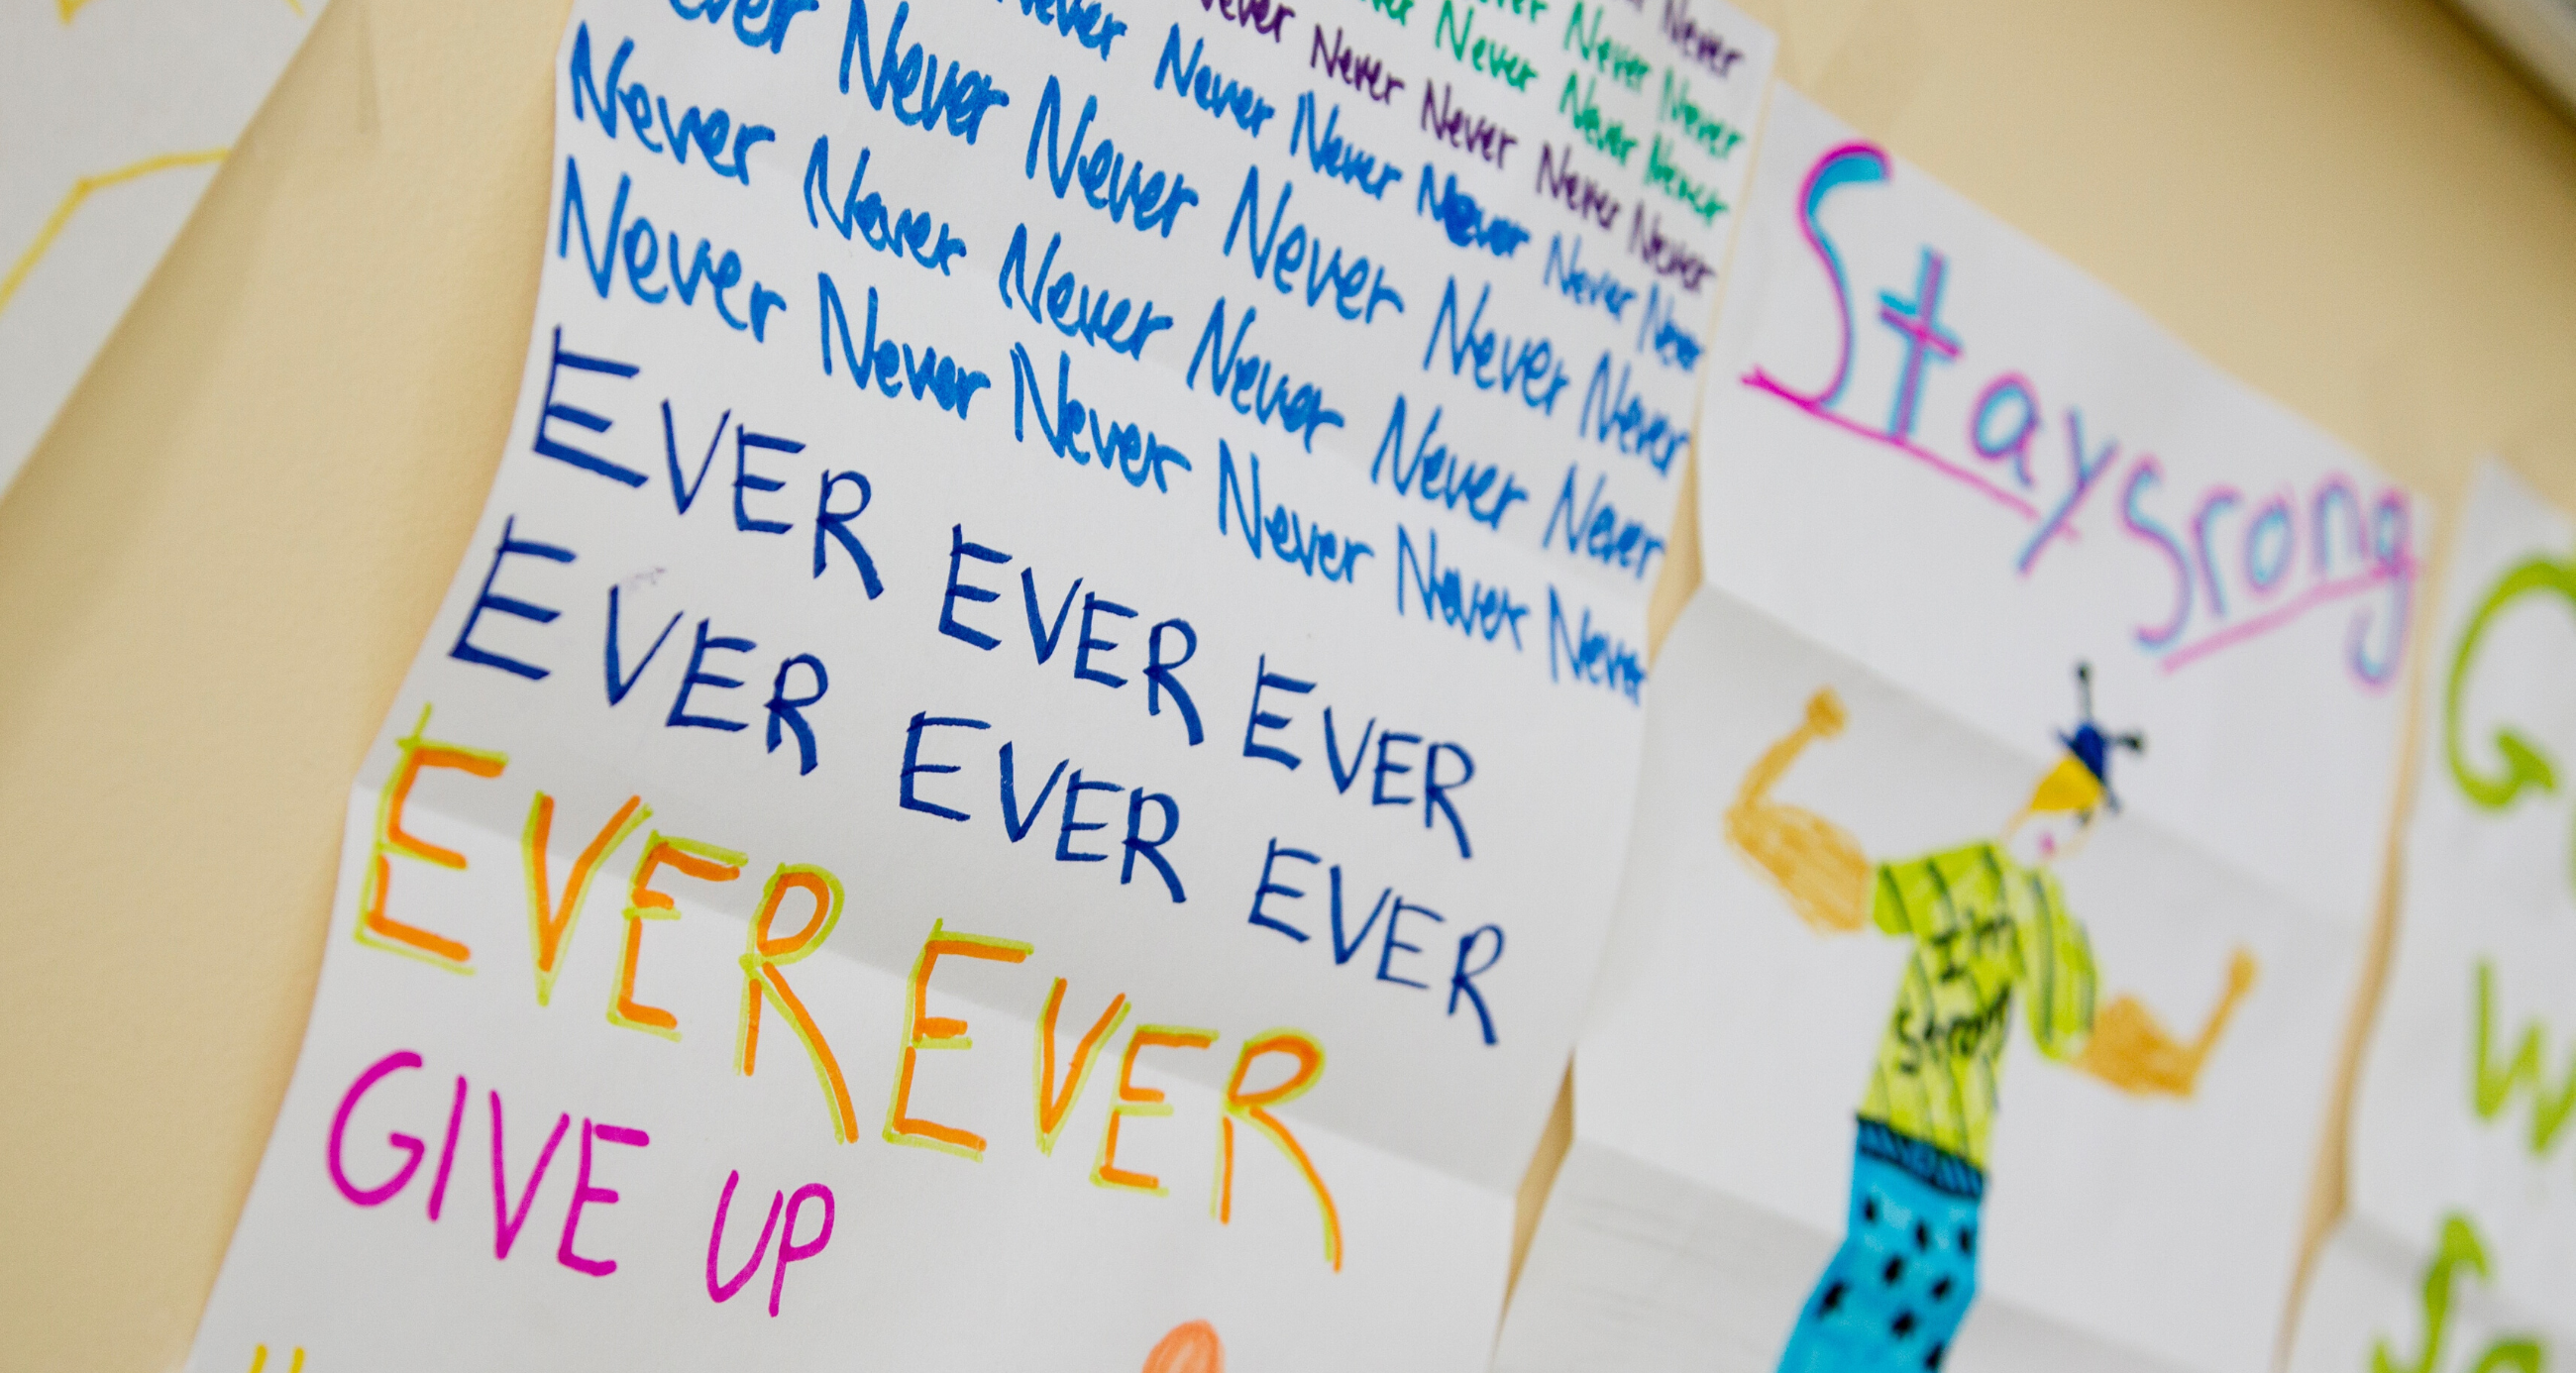 Never
Never Never
Never Never Never
Never Never Never Never
Never Never Never Never Never Never
ever Never Never Never Never Never
Never Never Never Never Never Never
Never Never Never Never Never Never
EVER EVER EVER
EVER EVER EVER
EVER EVER
GIVE UP
Stay srong
I'm
strong
G
W